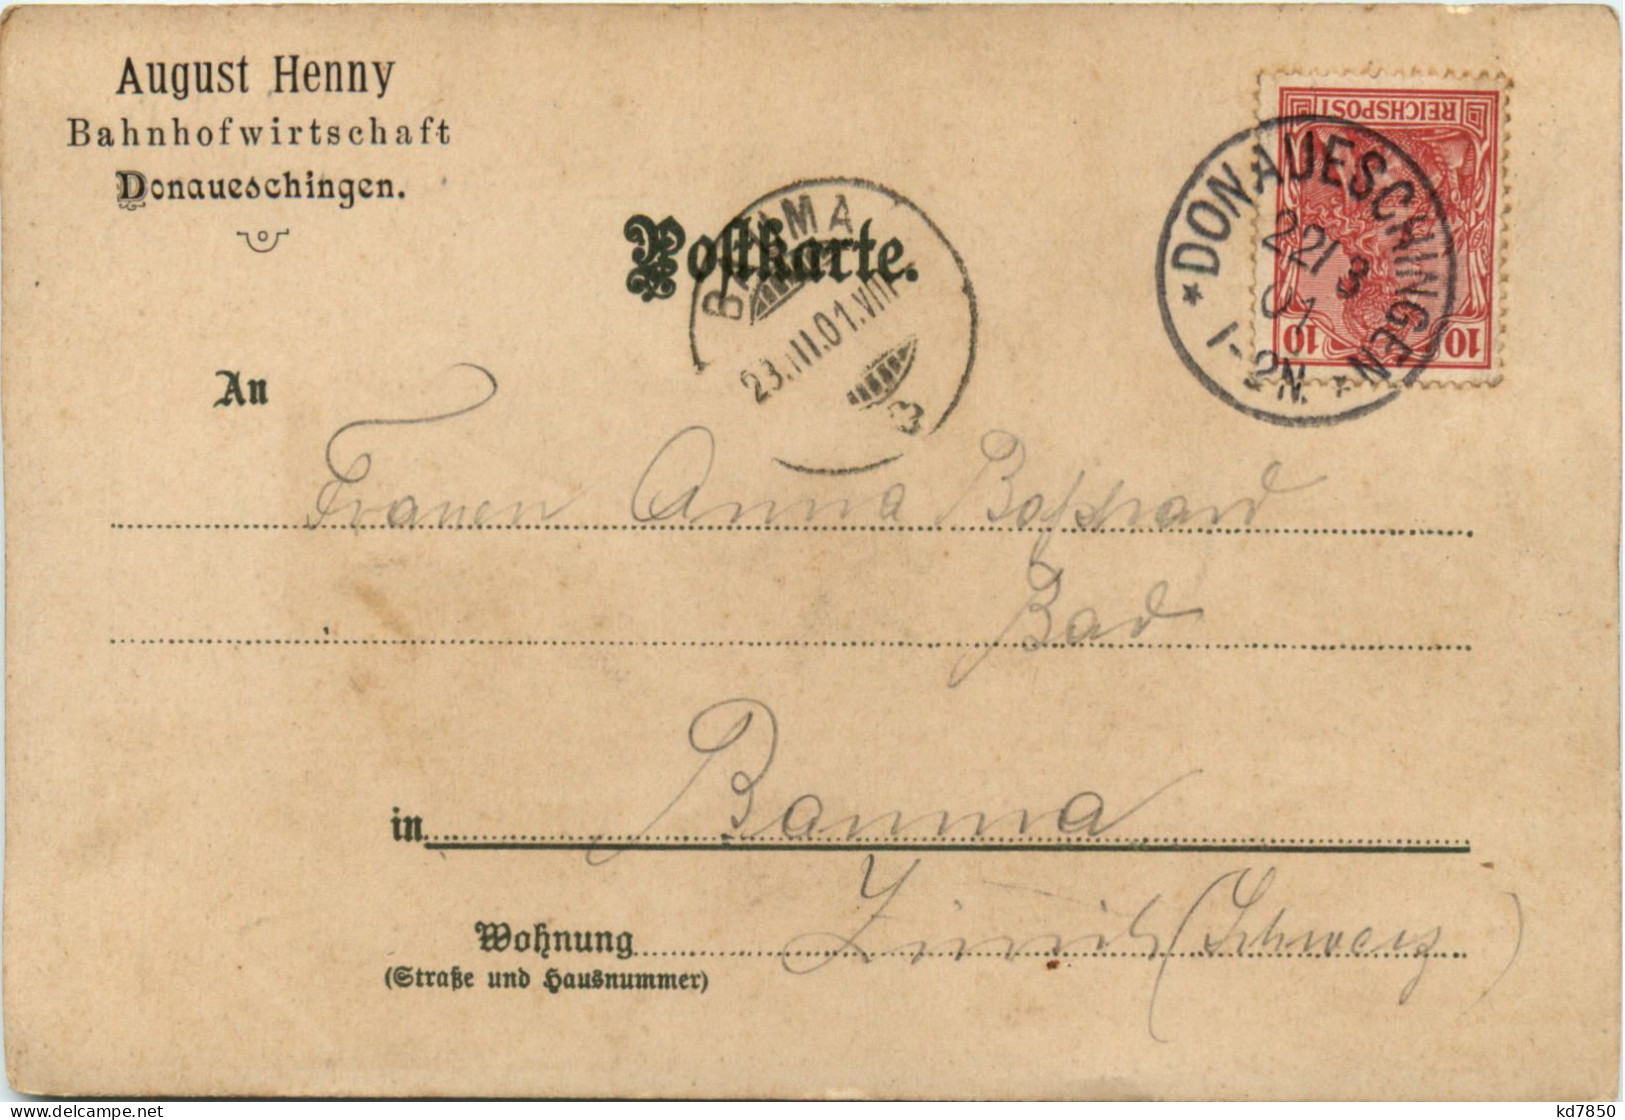 August Henny
Bahnhofwirtschaft
Donaueschingen.
REICHSPOST
10 10
* DONAUESCHINGEN *
22/ 3
01
1-2N.
BAUMA
23.III.01.VIII
Postkarte.
An
Frauen Anna Boßhard
Bad
in Bauma
Wohnung Zürich (Schweiz)
(Straße und Hausnummer)
delcampe.net
kd7850